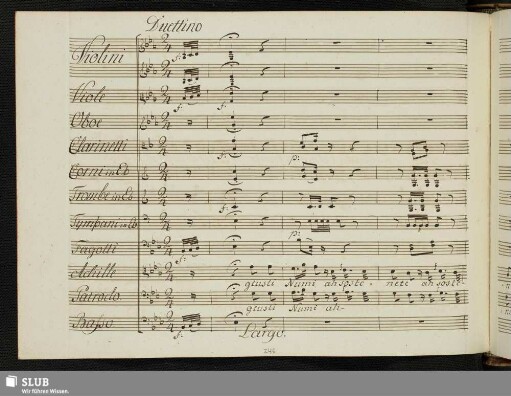 Duettino
Violini
Viole
Oboe
Clarinetti
Corni in Eb
Trombe in Eb
Tympani in Eb
Fagotti
Achille
giusti Numi ah soste - nete ah soste
Patroclo
giusti Numi ah
Basso
Largo.
SLUB
Wir führen Wissen.